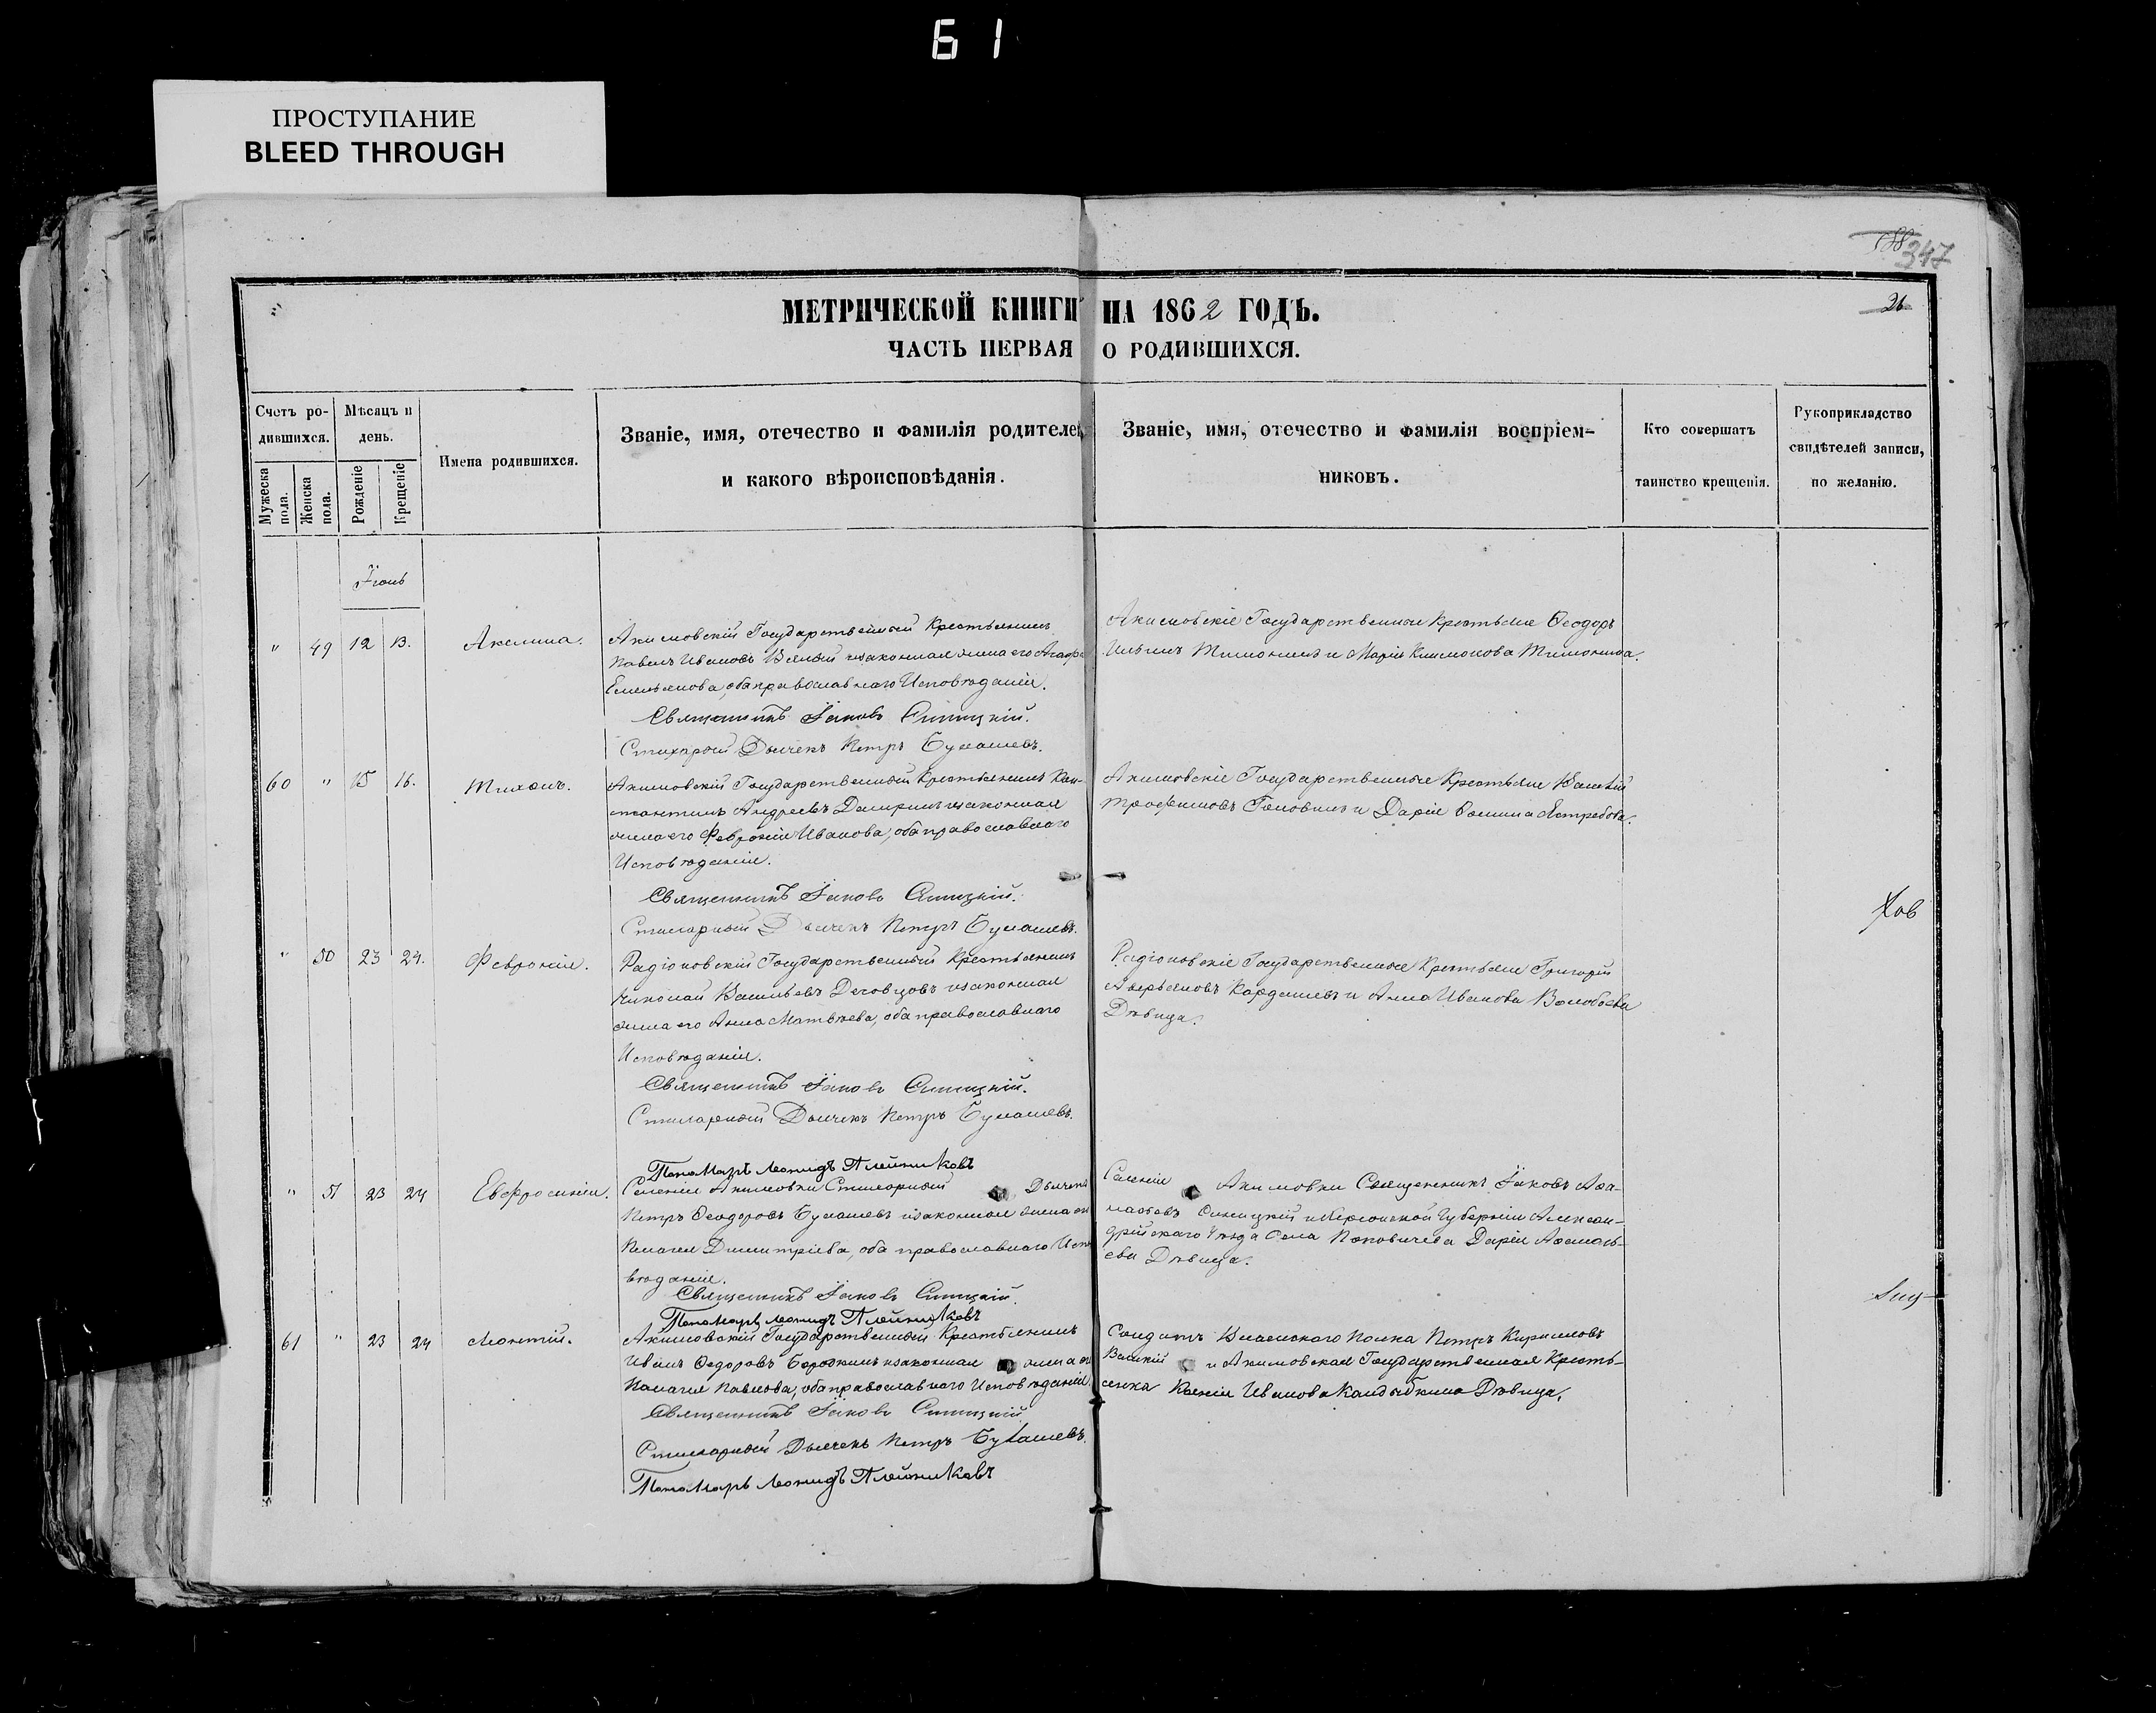 61
ПРОСТУПАНИЕ
BLEED THROUGH
347
МЕТРИЧЕСКОЙ КНИГИ НА 1862 ГОДЪ.
21
ЧАСТЬ ПЕРВАЯ О РОДИВШИХСЯ.
Счетъ ро-
дившихся.
Мужеска пола.
Женска пола.
Мѣсяцъ и
день.
Рожденіе
Крещеніе
Имена родившихся.
Званіе, имя, отечество и фамилія родителей,
и какого вѣроисповѣданія.
Званіе, имя, отечество и фамилія воспріем-
никовъ.
Кто совершатъ
таинство крещенія.
Рукоприкладство
свидѣтелей записи,
по желанію.
Іюнь
" 49 12 13. Акелина.
Акимовскій Государственный Крестьянинъ
Павелъ Ивановъ изаконная жена его
Емельянова, оба православнаго Исповѣданія.
Священникъ Іаковъ Синицкій.
Стихарный Дьячекъ Петръ Букашевъ.
Акимовскіе Государственные Крестьяне Ѳеодоръ
Ильинъ Тимонинъ и Марія Климокова Тимонина.
60 " 15 16. Тихонъ.
Акимовскій Государственный Крестьянинъ Кон-
стантинъ Андреевъ изаконная
жена его Февронія Иванова, оба православнаго
Исповѣданія.
Священникъ Іаковъ Синицкій.
Стихарный Дьячекъ Петръ Букашевъ.
Акимовскіе Государственные Крестьяне Василій
Трофимовъ Головинъ и Дарія Фомина Ястребова.
" 50 23 24. Февронія.
Радіоновскій Государственный Крестьянинъ
Николай Васильевъ изаконная
жена его Анна Матвѣева, оба православнаго
Исповѣданія.
Священникъ Іаковъ Синицкій.
Стихарный Дьячекъ Петръ Букашевъ.
Пономарь Леонидъ Плейниковъ
Радіоновскіе Государственные Крестьяне Григорій
Аверьяновъ Кардашевъ и Анна Иванова Волобоева
Дѣвица.
" 51 23 24 Евфросинія.
Селенія Акимовки Стихарный Дьячекъ
Петръ Ѳеодоровъ Букашевъ изаконная жена его
Пелагея Димитріева, оба православнаго Испо-
вѣданія.
Священникъ Іаковъ Синицкій.
Пономарь Леонидъ Плейниковъ
Селенія Акимовки Священникъ Іаковъ Аѳа-
насьевъ Синицкій и Херсонской Губерніи Алексан-
дрійскаго Уѣзда Села Поповичева Дарія
Дѣвица.
61 " 23 24 Леонтій.
Акимовскій Государственный Крестьянинъ
Иванъ Ѳедоровъ Бородкинъ изаконная жена его
Палагея Павлова, оба православнаго Исповѣданія.
Священникъ Іаковъ Синицкій
Стихарный Дьячекъ Петръ Букашевъ.
Пономарь Леонидъ Плейниковъ
Солдатъ Виленскаго Полка Петръ Кирилловъ
и Акимовская Государственная Кресть-
янка Ксенія Иванова Кандыбкина Дѣвица.